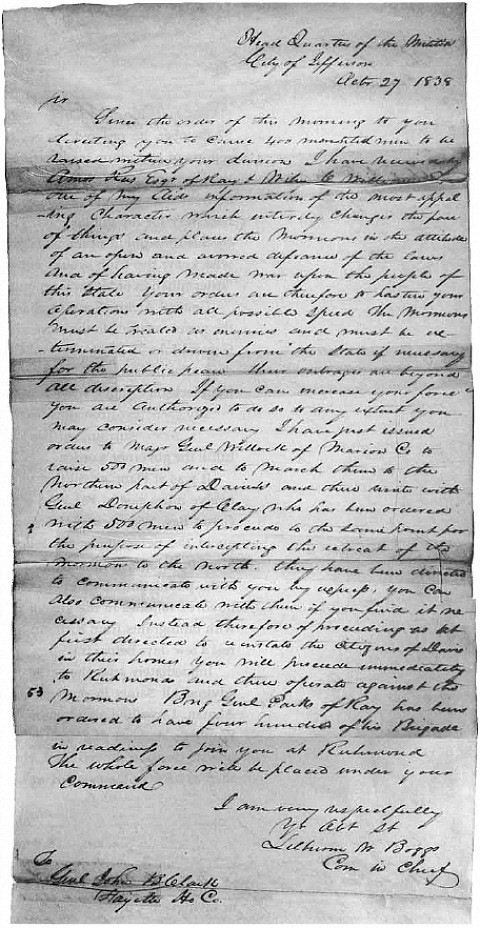 Head Quarters of the Militia
City of Jefferson
Octr 27 1838
Sir
Since the order of this morning to you
directing you to cause 400 mounted men to be
raised within your division I have received by
Amos Rees Esqr of Ray & Wiley C Williams
one of my Aids information of the most appal
-ing Character which entirely changes the face
of things and places the Mormons in the attitude
of an open and avowed defiance of the laws
and of having made war upon the people of
this State Your orders are therefore to hasten your
operations with all possible speed The Mormons
must be treated as enemies and must be ex
-terminated or driven from the State if necessary
for the public peace their outrages are beyond
all description If you can increase your force
you are authorized to do so to any extent you
may consider necessary I have just issued
orders to Majr Genl Willock of Marion Co to
raise 500 men and to march them to the
Northern part of Daviess and there unite with
Genl Doniphon of Clay who has been ordered
with 500 men to proceede to the same point for
the purpose of intercepting the retreat of the
Mormon to the North. they have been directed
to communicate with you by express. you can
also communicate with them if you find it ne
cessary Instead therefore of proceeding as at
first directed to reinstate the Citizens of Daviess
in their homes you will proceede immediately
to Richmond and there operate against the
53
Mormons Brig Genl Parks of Ray has been
ordered to have four hundred of his Brigade
in readiness to join you at Richmond
The whole force will be placed under your
Command
I am very respectfully
Yr Obt St
Lilburn W Boggs
Com in Chief
To
Genl John B Clark
Fayette Ho Co.